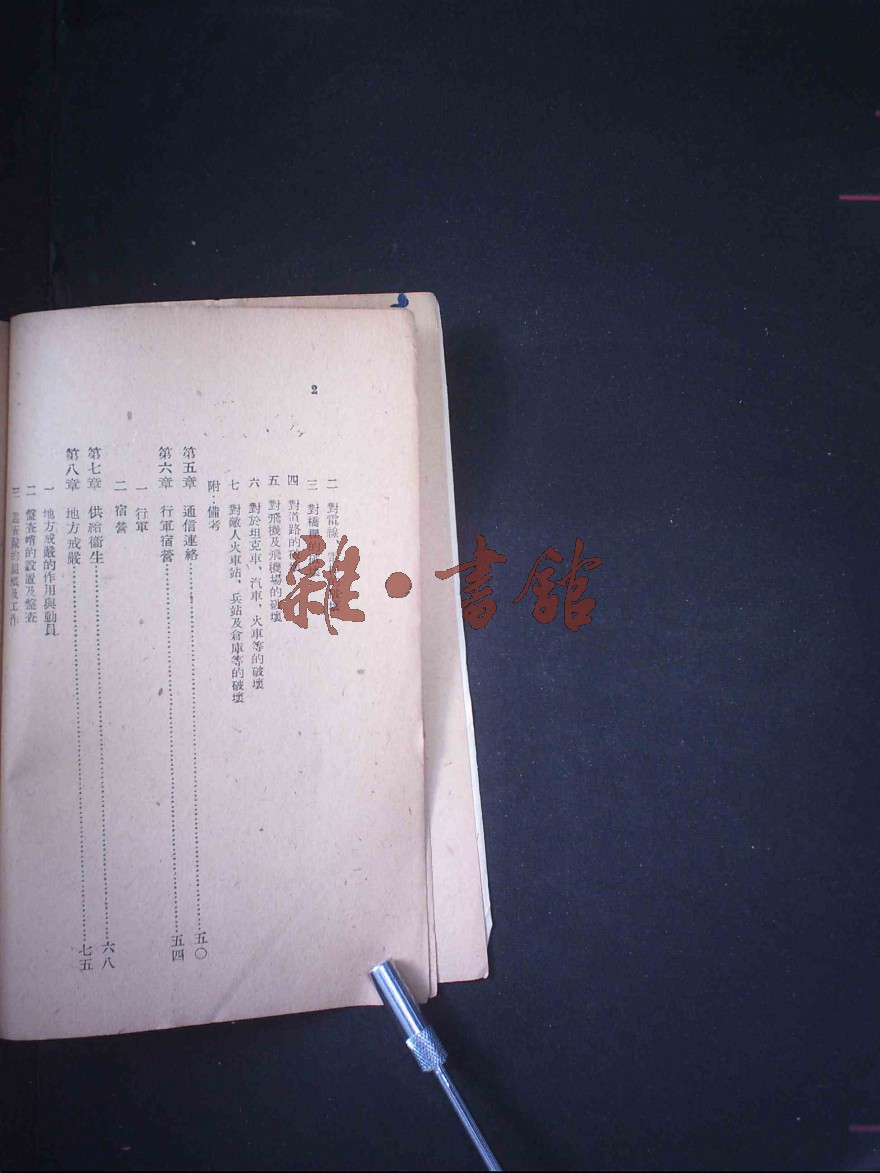 2
二 對電線
三 對橋
四 對道路的破
五 對飛機及飛機場的破壞
六 對於坦克車、汽車、火車等的破壞
七 對敵人火車站、兵站及倉庫等的破壞
附：備考
第五章 通信連絡…………五〇
第六章 行軍宿營…………五四
一 行軍
二 宿營
第七章 供給衛生…………六八
第八章 地方戒嚴…………七五
一 地方戒嚴的作用與動員
二 盤查哨的設置及盤查
三 的組織及工作
雜·書館